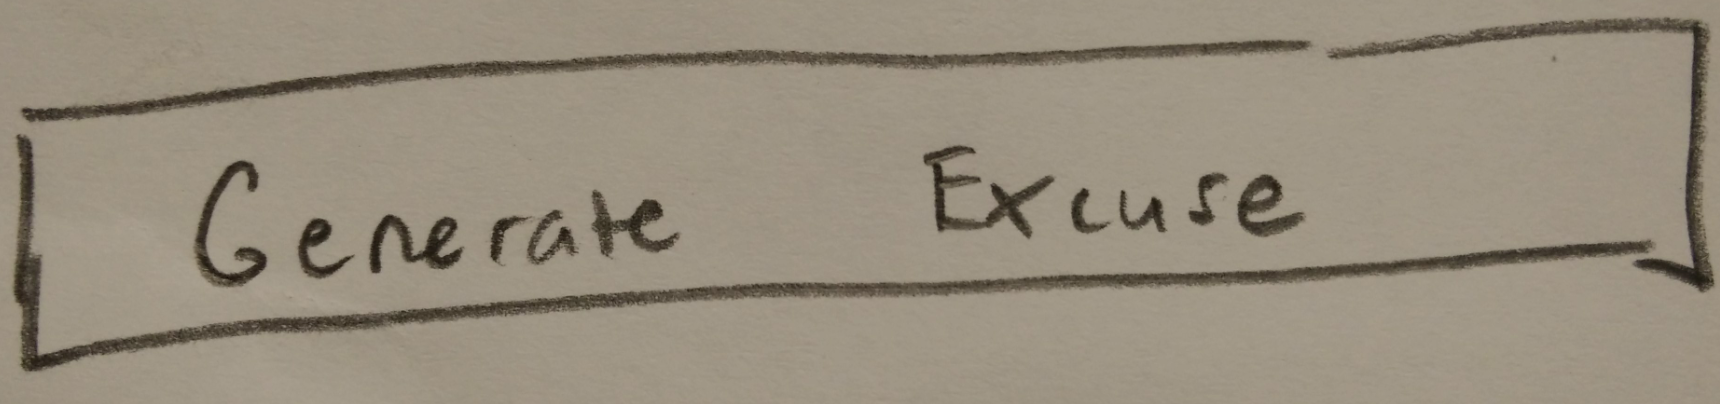 Generate Excuse